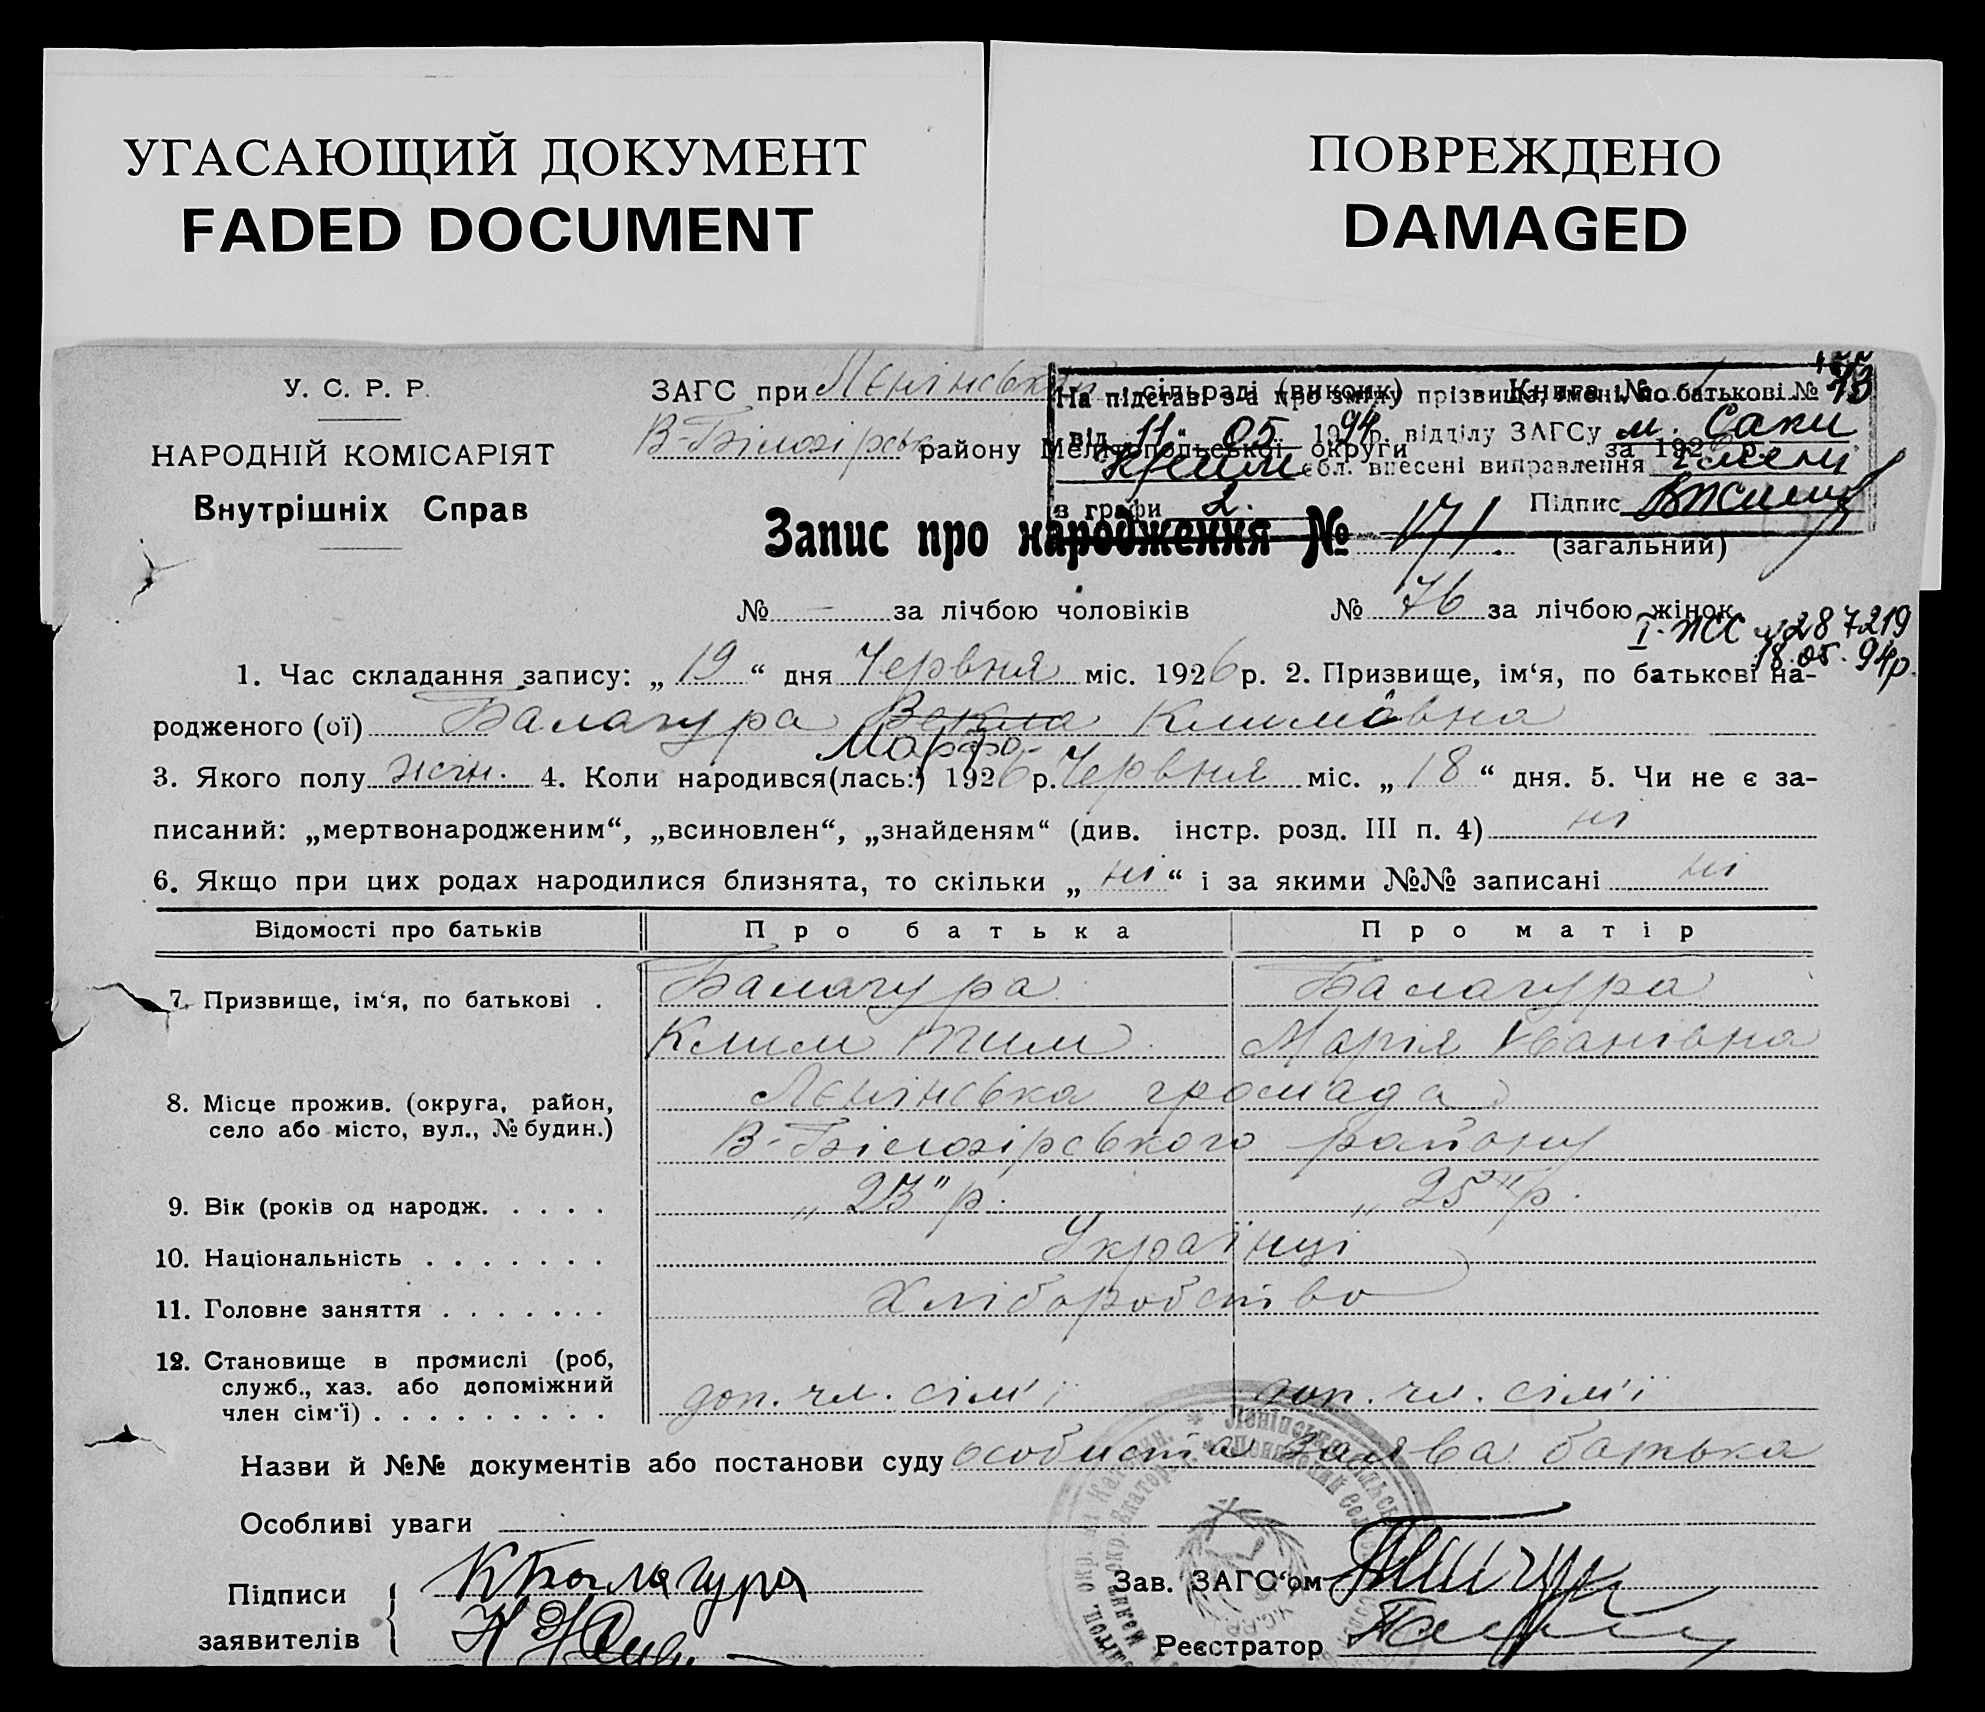 УГАСАЮЩИЙ ДОКУМЕНТ
FADED DOCUMENT
ПОВРЕЖДЕНО
DAMAGED
У. С. Р. Р.
НАРОДНІЙ КОМІСАРІЯТ
Внутрішніх Справ
ЗАГС при Лєнінськ сільраді (виконк) Книга №
В-Білозірськ району Мелітопольської округи за 192 р.
На підставі з-а про зміну прізвища, імені, по батькові № 43
від „11“ 05 1994р. відділу ЗАГСу м. Саки
Крим обл. внесені виправлення імени
в графи 2. Підпис
Запис про народження № 171. (загальний)
№ — за лічбою чоловіків № 76 за лічбою жінок
І-ЖС № 287219
18.05.94р.
1. Час складання запису: „19“ дня Червня міс. 1926 р. 2. Призвище, ім‘я, по батькові на-
родженого (ої) Балагура Векла Климовна
Марфа
3. Якого полу жін. 4. Коли народився(лась:) 1926 р. Червня міс. „18“ дня. 5. Чи не є за-
писаний: „мертвонародженим“, „всиновлен“, „знайденям“ (див. інстр. розд. III п. 4) ні
6. Якщо при цих родах народилися близнята, то скільки „ні“ і за якими №№ записані ні
Відомості про батьків Про батька Про матір
7. Призвище, ім‘я, по батькові . Балагура Балагура
Клим Тим Марія Іванівна
8. Місце прожив. (округа, район, Лєнінська громада
село або місто, вул., № будин.) В-Білозірського району
9. Вік (років од народж. . . . . „23“ р. „25“ р.
10. Національність . . . . . . . Українці
11. Головне заняття . . . . . . . Хліборобство
12. Становище в промислі (роб,
служб., хаз. або допоміжний
член сім‘ї) . . . . . . . . . доп. чл. сім'ї доп. чл. сім'ї
Назви й №№ документів або постанови суду особиста заява батька
Особливі уваги
Підписи К Балагура Зав. ЗАГС‘ом
заявителів Реєстратор